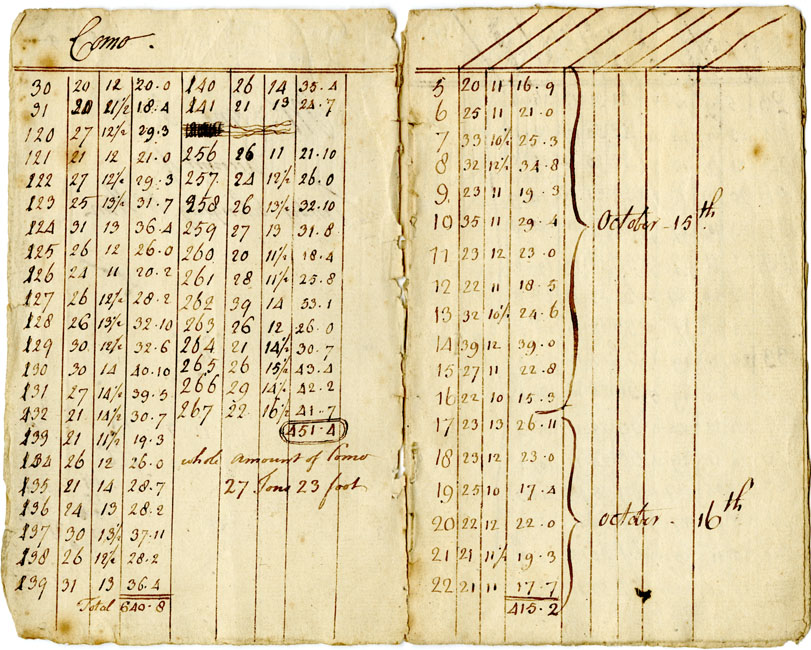 Como.
30 20 12 20.0 140 26 14 35.4
31 20 21½ 18.4 141 21 13 24.7
120 27 12½ 29.3
121 21 12 21.0 256 26 11 21.10
122 27 12½ 29.3 257 24 12½ 26.0
123 25 13½ 31.7 258 26 13½ 32.10
124 31 13 36.4 259 27 13 31.8
125 26 12 26.0 260 20 11½ 18.4
126 24 11 20.2 261 28 11½ 25.8
127 26 12½ 28.2 262 39 14 53.1
128 26 13½ 32.10 263 26 12 26.0
129 30 12½ 32.6 264 21 14½ 30.7
130 30 14 40.10 265 26 15½ 43.4
131 27 14½ 39.5 266 29 14½ 42.2
132 21 14½ 30.7 267 22 16½ 41.7
133 21 11½ 19.3 451.4
134 26 12 26.0 whole amount of Como
135 21 14 28.7 27 Tons 23 foot
136 24 13 28.2
137 30 13½ 37.11
138 26 12½ 28.2
139 31 13 36.4
Total 640.8
5 20 11 16.9
6 25 11 21.0
7 33 10½ 25.3
8 32 12½ 34.8
9 23 11 19.3
10 35 11 29.4 October 15th
11 23 12 23.0
12 22 11 18.5
13 32 10½ 24.6
14 39 12 39.0
15 27 11 22.8
16 22 10 15.3
17 23 13 26.11
18 23 12 23.0
19 25 10 17.4
20 22 12 22.0 October 16th
21 21 11½ 19.3
22 21 11 17.7
415.2